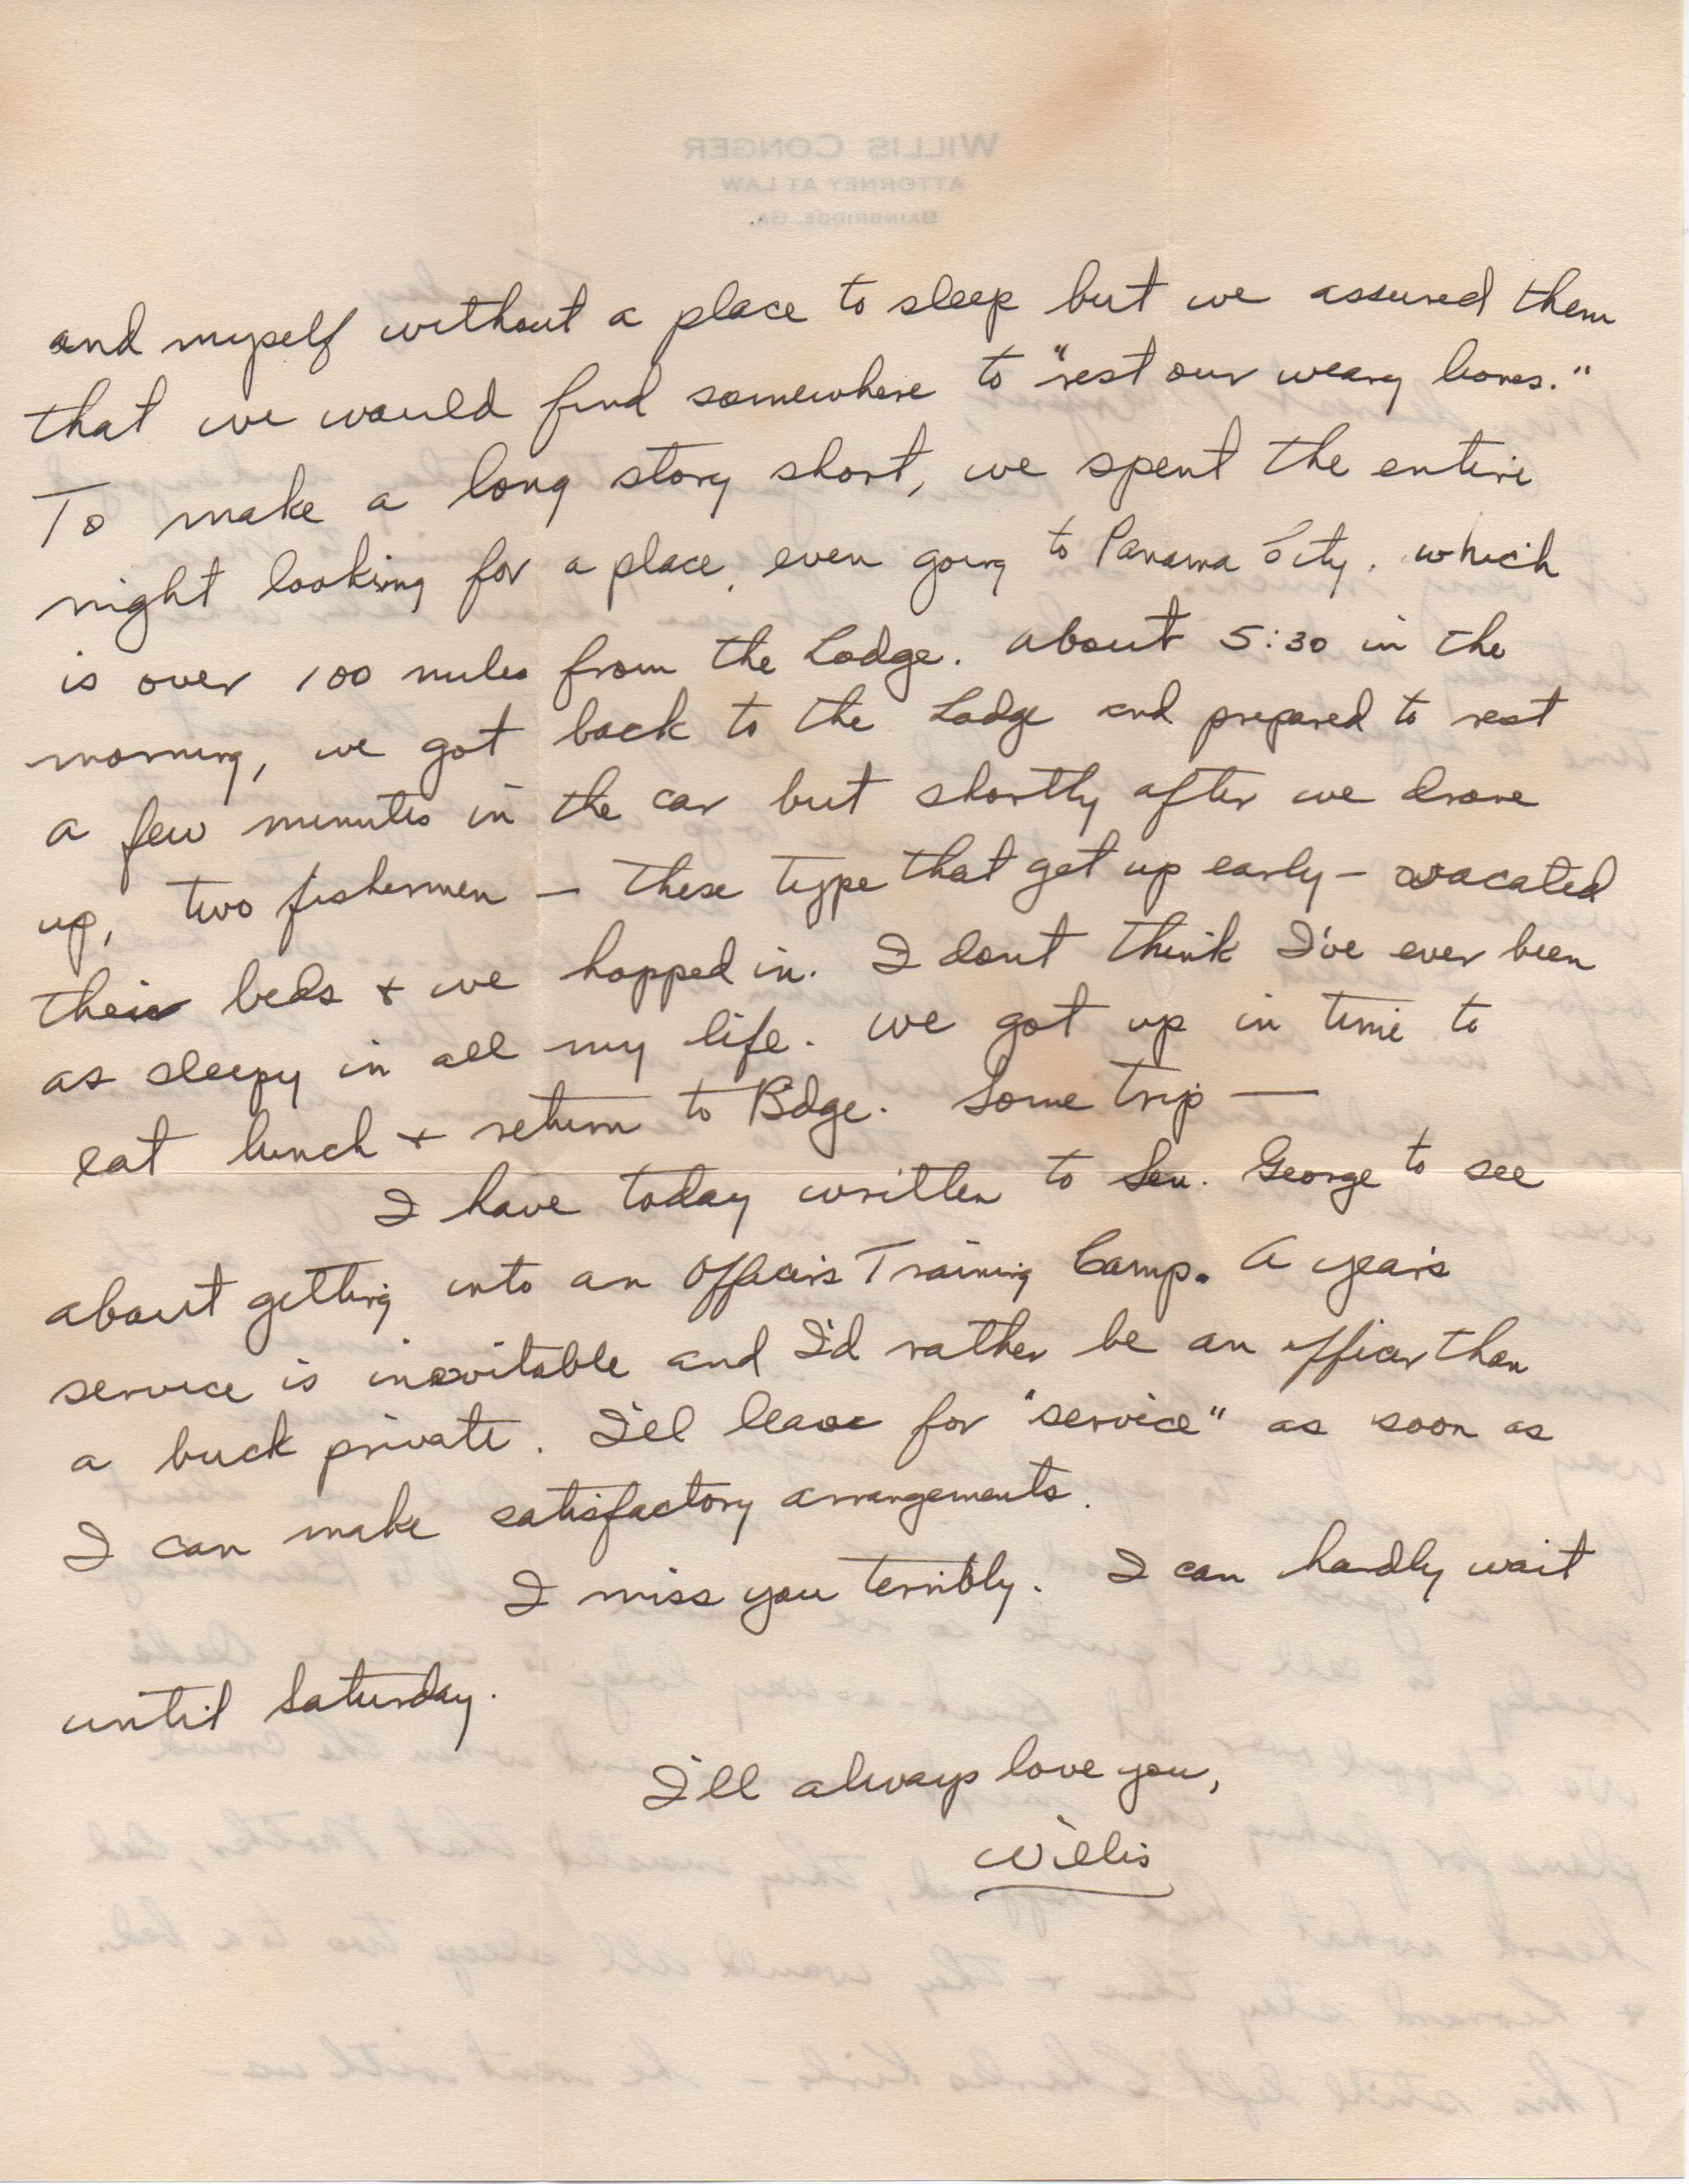 WILLIS CONGER
ATTORNEY AT LAW
BAINBRIDGE, GA.
and myself without a place to sleep but we assured them
that we would find somewhere to "rest our weary bones."
To make a long story short, we spent the entire
night looking for a place, even going to Panama City, which
is over 100 miles from the Lodge. About 5:30 in the
morning, we got back to the Lodge and prepared to rest
a few minutes in the car but shortly after we drove
up, two fishermen — these type that get up early — vacated
their beds + we hopped in. I dont think I've ever been
as sleepy in all my life. We got up in time to
eat lunch + return to Bdge. Some trip —
I have today written to Sen. George to see
about getting into an Officer's Training Camp. A year's
service is inevitable and I'd rather be an officer than
a buck private. I'll leave for "service" as soon as
I can make satisfactory arrangements.
I miss you terribly. I can hardly wait
until Saturday.
I'll always love you,
Willis